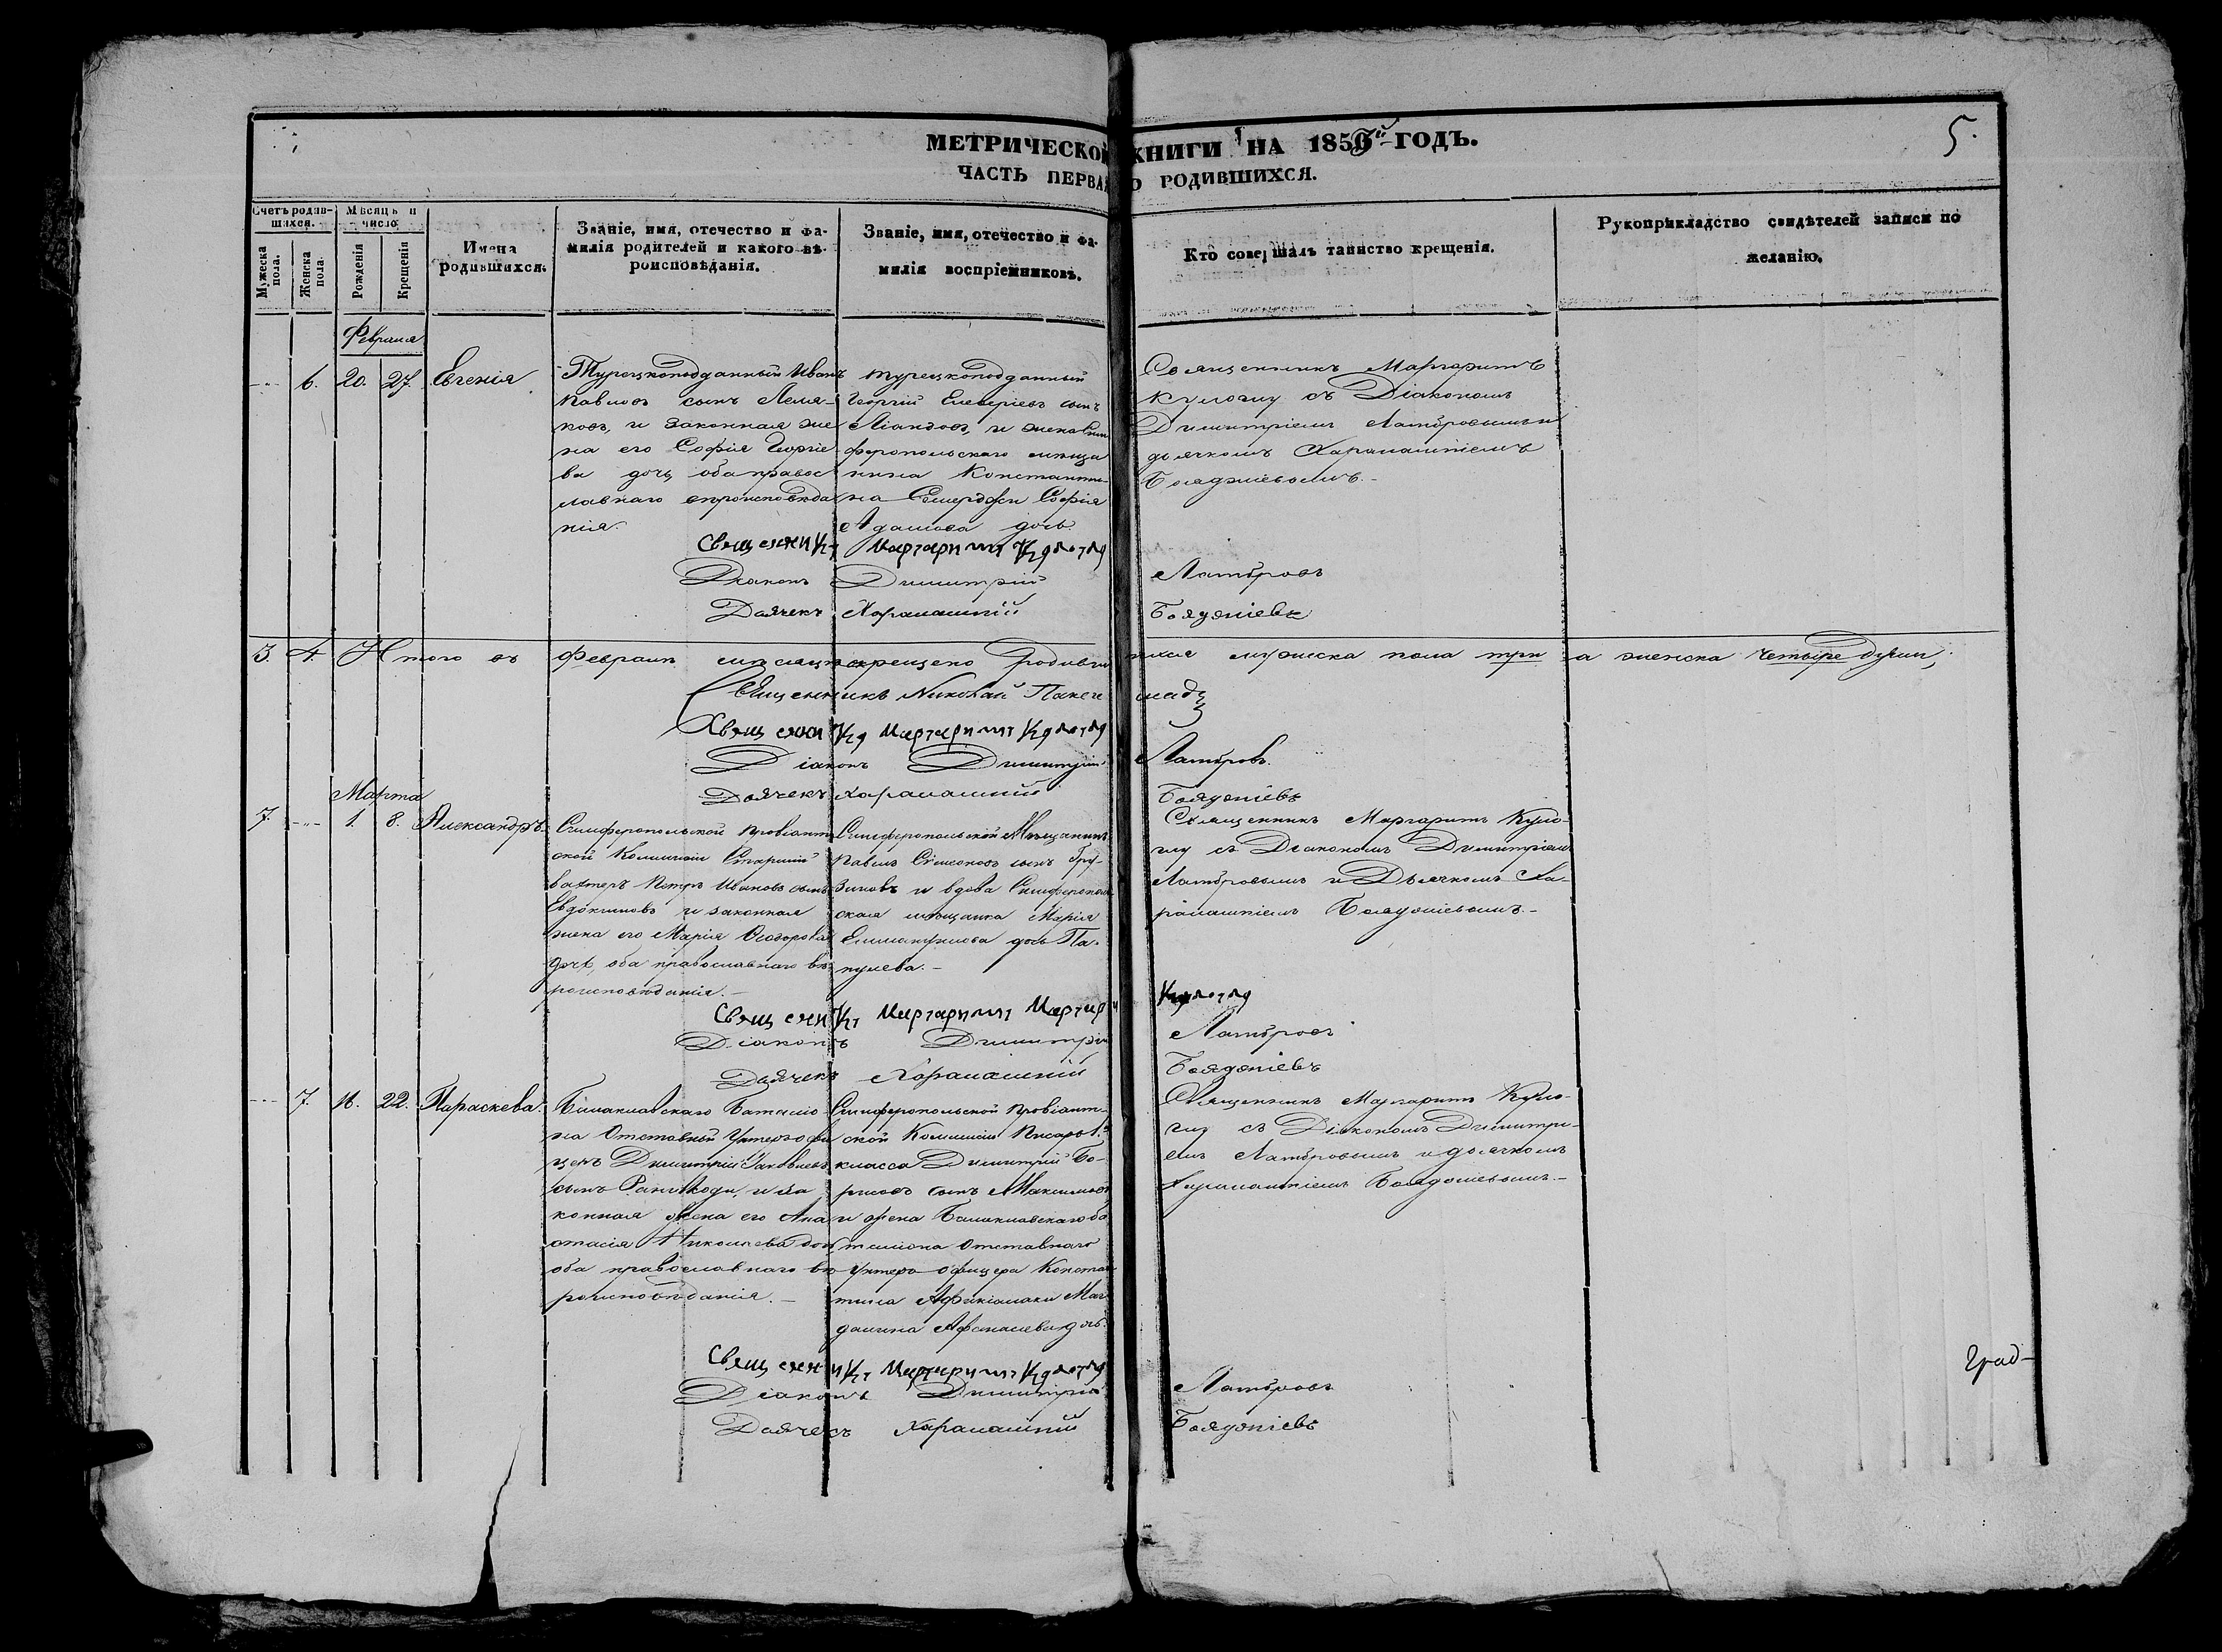 МЕТРИЧЕСКОЙ КНИГИ НА 1850й ГОДЪ.
5.
ЧАСТЬ ПЕРВАЯ О РОДИВШИХСЯ.
Счетъ родившихся.
Мужеска пола.
Женска пола.
Мѣсяцъ и число
Рожденія
Крещенія
Имена родившихся.
Званіе, имя, отечество и фа-
милія родителей и какого вѣ-
роисповѣданія.
Званіе, имя, отечество и фа-
милія воспріемниковъ.
Кто совершалъ таинство крещенія.
Рукоприкладство свидѣтелей записи по
желанію.
Февраля
6. 20. 27. Евгенія
Турецкоподданный Иванъ
Павловъ сынъ
и законная же
на его Софія Георгіе
ва дочь, оба правос
лавнаго вѣроисповѣда
нія.
турецкоподданный
Георгій Елевѣріевъ сынъ
и жена Сим
феропольскаго мѣща
нина Константи-
на Софія
Адамова дочь.
Священникъ Маргаритъ
Кулоглу съ Діакономъ
Димитріемъ Латбровымъ и
дьячкомъ Харалампіемъ
Бояджіевомъ.-
Священникъ Маргаритъ Кулоглу
Діаконъ Димитрій Латбровъ
Дьячекъ Харалампій Бояджіевъ
3. 4. Итого въ Февралѣ мѣсяцѣ крещено родившихся мужеска пола три а женска четыре души,
Священникъ Николай
Священникъ Маргаритъ Кулоглу
Діаконъ Димитрій Латбровъ.
Дьячекъ Харалампій Бояджіевъ
Марта
7. 1. 8. Александръ.
Симферопольской Провіант
ской Коммисіи Старшій
вахтеръ Петръ Ивановъ сынъ
Евдокимовъ и законная
жена его Марія Ѳеодорова
дочь, оба православнаго вѣ
роисповѣданія.-
Симферопольской Мѣщанинъ
Павелъ Симеоновъ сынъ Гру-
зиновъ и вдова Симферополь
ская мѣщанка Марія
Еммануилова дочь Па-
пулева.-
Священникъ Маргаритъ Куло-
глу съ Діакономъ Димитріемъ
Латбровымъ и Дьячкомъ Ха-
ралампіемъ Бояджіевымъ.-
Священникъ Маргаритъ Кулоглу
Діаконъ Димитрій Латбровъ
Дьячекъ Харалампій Бояджіевъ
7. 16. 22. Параскева.
Балаклавскаго Баталіо-
на Отставный Унтеръ-офи
церъ Димитрій Яковлевъ
сынъ и за
конная жена его Ана
стасія Николаева дочь
оба православнаго вѣ
роисповѣданія.-
Симферопольской Провіант-
ской Коммисіи Писарь 1.го
класса Димитрій Бо-
рисовъ сынъ Максимовъ
и жена Балаклавскаго ба
таліона Отставнаго
Унтеръ офицера Констан
тина Маг
далина Афанасьева дочь.
Священникъ Маргаритъ Куло-
глу съ Діакономъ Димитрі-
емъ Латбровымъ и дьячкомъ
Харалампіемъ Бояджіевымъ.-
Священникъ Маргаритъ Кулоглу
Діаконъ Димитрій Латбровъ
Дьячекъ Харалампій Бояджіевъ
Град-